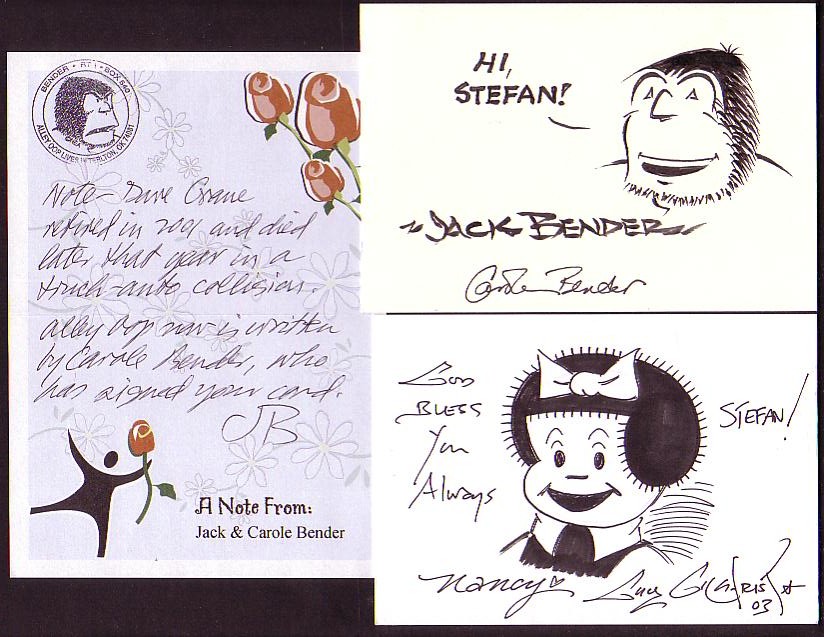 BENDER • RT 1 • BOX 540
ALLEY OOP LIVES IN TERLTON, OK 74081
Note- Dave Graue
retired in 2001 and died
later that year in a
truck-auto collision.
Alley Oop now is written
by Carole Bender, who
has signed your card.
JB
A Note From:
Jack & Carole Bender
HI,
STEFAN!
~JACK BENDER~
Carole Bender
God
BLESS
You
Always
STEFAN!
Nancy
Guy Gilchrist
03